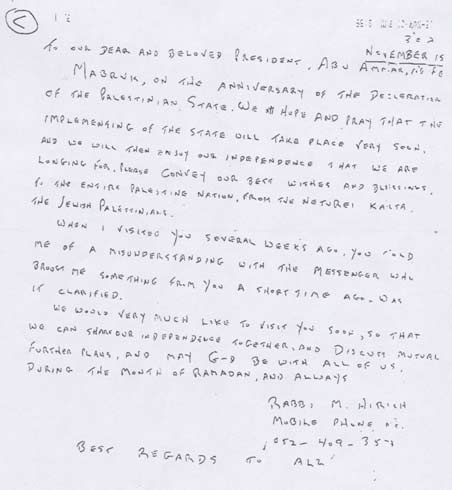 NOVEMBER 15
TO OUR DEAR AND BELOVED PRESIDENT, ABU AMMAR,
MABRUK, ON THE ANNIVERSARY OF THE DECLERATION
OF THE PALESTINIAN STATE. WE HOPE AND PRAY THAT THE
IMPLEMENTING OF THE STATE WILL TAKE PLACE VERY SOON.
AND WE WILL THEN ENJOY OUR INDEPENDENCE THAT WE ARE
LONGING FOR. PLEASE CONVEY OUR BEST WISHES AND BLESSINGS,
TO THE ENTIRE PALESTINE NATION, FROM THE NETUREI KARTA.
THE JEWISH PALESTINIANS.
WHEN I VISITED YOU SEVERAL WEEKS AGO, YOU TOLD
ME OF A MISUNDERSTANDING WITH THE MESSENGER WHO
BROUGT ME SOMETHING FROM YOU A SHORT TIME AGO. WAS
IT CLARIFIED.
WE WOULD VERY MUCH LIKE TO VISIT YOU SOON, SO THAT
WE CAN SHARE OUR INDEPENDENCE TOGETHER, AND DISCUSS MUTUAL
FURTHER PLANS, AND MAY G-D BE WITH ALL OF US.
DURING THE MONTH OF RAMADAN, AND ALWAYS
RABBI M. HIRSCH
MOBILE PHONE
052-409-357
BEST REGARDS TO ALL